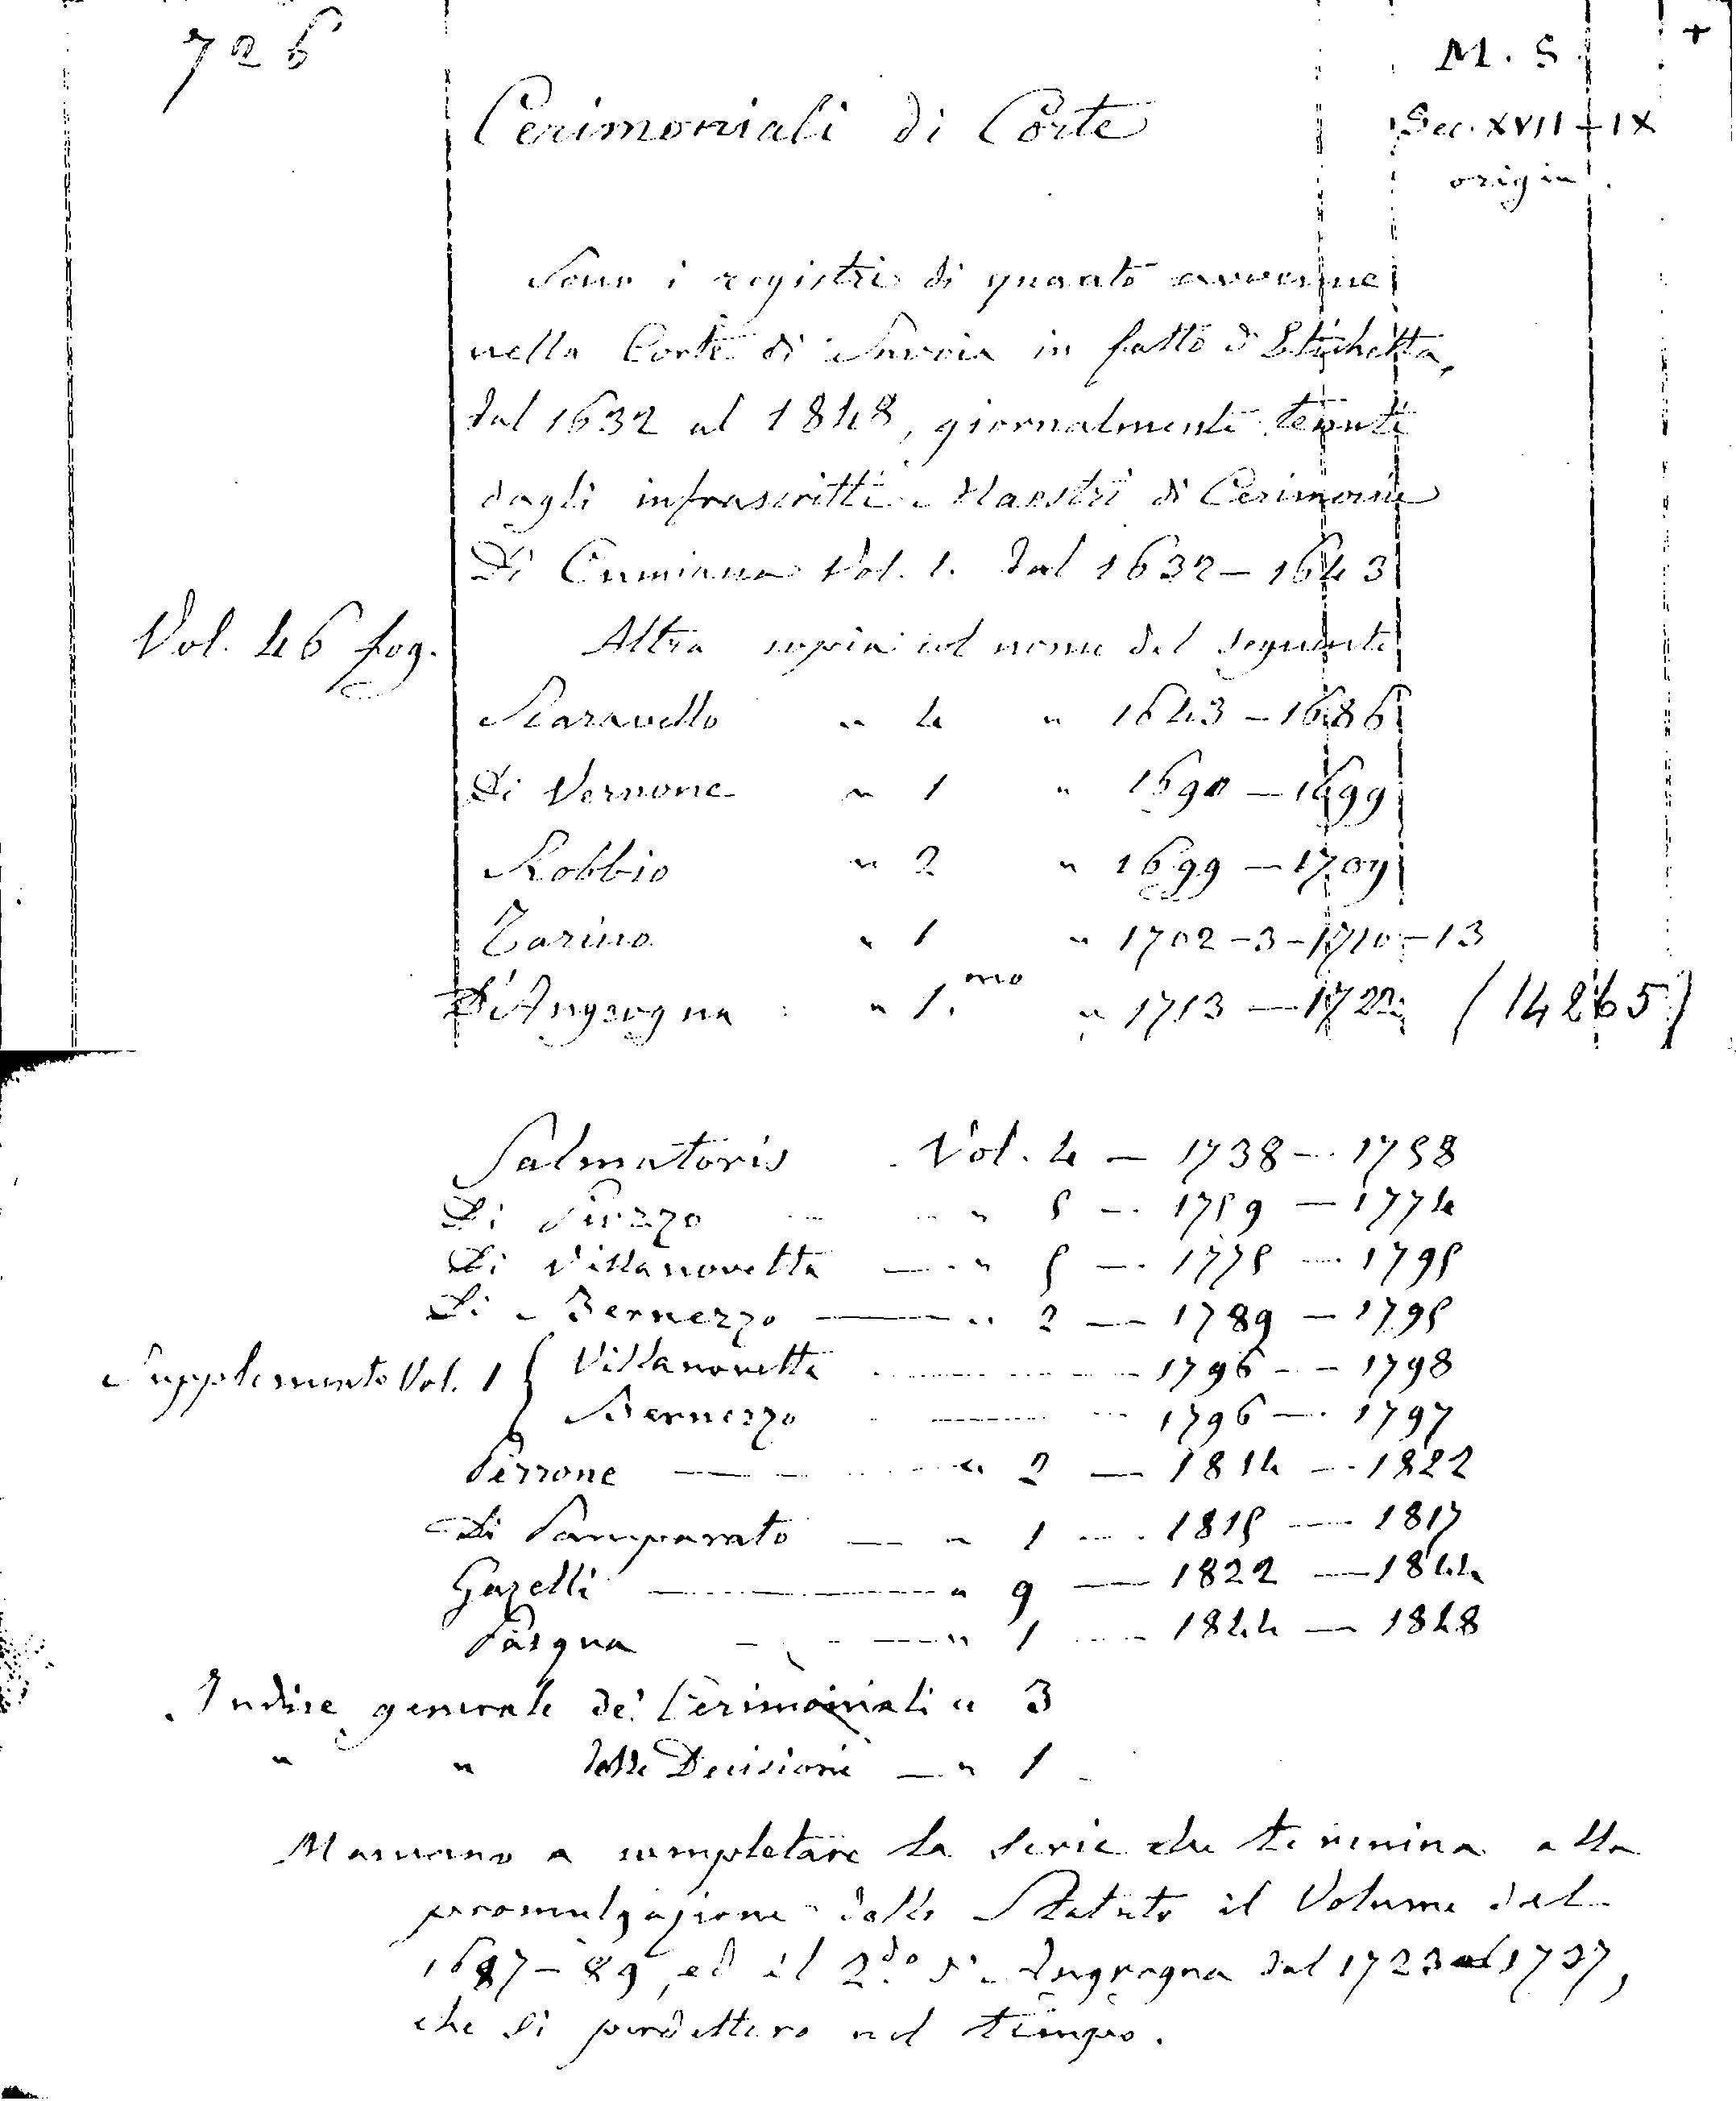 726
M. S. +
Cerimoniali di Corte
Sec. XVII - IX
origin.
Sono i registri di quanto avvenne
nella Corte di Savoia in fatto di Etichetta,
dal 1632 al 1848, giornalmente tenuti
dagli infrascritti Maestri di Cerimonie
Di Cumiana Vol. 1. dal 1632 – 1643
Vol. 46 fog. Altra copia col nome del seguente
Scaravello " 4 " 1643 – 1686
Di Vernone " 1 " 1690 – 1699
Robbio " 2 " 1699 – 1709
Tarino " 1 " 1702 – 3 – 1710 – 13
D'Angrogna " 1.mo " 1713 – 1722 (14265)
Salmatoris Vol. 4 – 1738 – 1758
Di " 5 – 1759 – 1774
Di Villanovetta " 5 – 1775 – 1795
Di Bernezzo " 2 – 1789 – 1795
Supplemento Vol. 1 { Villanovetta 1796 – 1798
Bernezzo 1796 – 1797
Perrone " 2 – 1814 – 1822
Di Pamparato " 1 – 1815 – 1817
Gazelli " 9 – 1822 – 1844
Pasqua " 1 – 1844 – 1848
Indice generale de' Cerimoniali " 3
" " delle Decisioni – " 1
Mancano a completare la serie che termina alla
promulgazione dello Statuto il Volume del
1687 – 89, ed il 2.do d'Angrogna dal 1723 al 1737,
che si perdettero nel tempo.